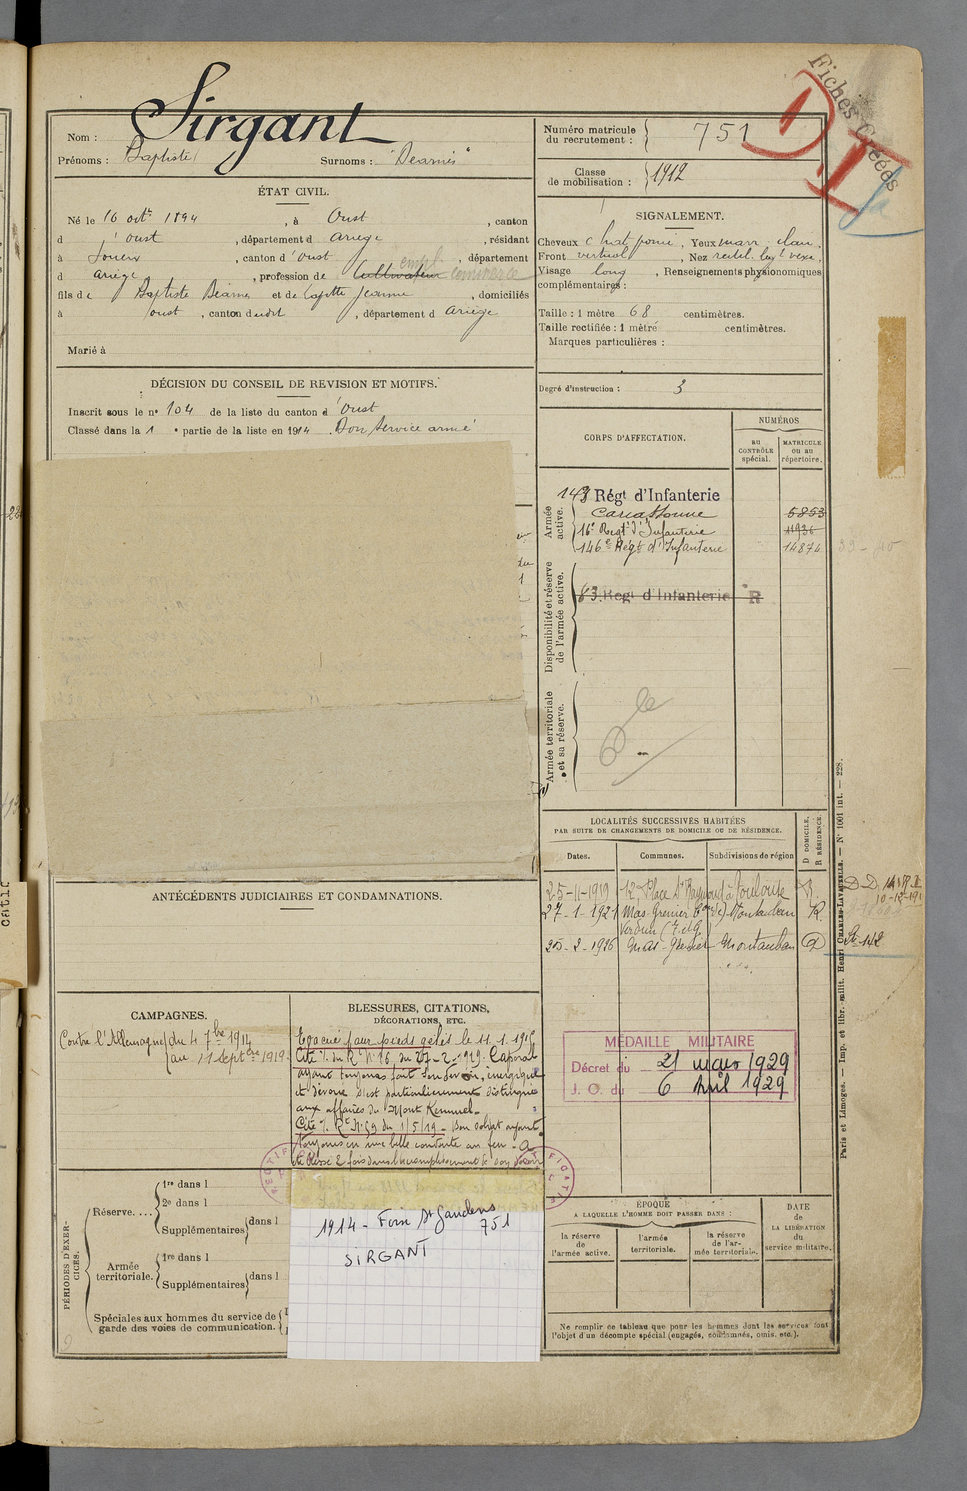 Sirgant
Nom :
Prénoms : Baptiste Surnoms :
Numéro matricule du recrutement : 751
Classe de mobilisation : 1912
Fiches Créées
ÉTAT CIVIL.
Né le 16 octe 1894, à Oust, canton
d'oust, département d Ariège, résidant
à, canton d'oust, département
d Ariège, profession de Cultivateur empl. commerce
fils de Baptiste et de Jeanne, domiciliés
à oust, canton dudit, département d Ariège
Marié à
SIGNALEMENT.
Cheveux chat, Yeux marr
Front vertical, Nez rectil.
Visage long, Renseignements physionomiques
complémentaires :
Taille : 1 mètre 68 centimètres.
Taille rectifiée : 1 mètre centimètres.
Marques particulières :
Degré d'instruction : 3
DÉCISION DU CONSEIL DE REVISION ET MOTIFS.
Inscrit sous le n° 104 de la liste du canton d'Oust
Classé dans la 1e partie de la liste en 1914. Bon service armé
CORPS D'AFFECTATION.
NUMÉROS
au CONTRÔLE spécial.
MATRICULE ou au répertoire.
Armée active.
143 Régt d'Infanterie
Carcassonne 5853
16e Regt d'Infanterie 11936
146e Régt d'Infanterie 14874
Disponibilité et réserve de l'armée active.
83 Régt d'Infanterie R
Armée territoriale et sa réserve.
LOCALITÉS SUCCESSIVES HABITÉES
PAR SUITE DE CHANGEMENTS DE DOMICILE OU DE RÉSIDENCE.
Dates. Communes. Subdivisions de région
D DOMICILE, R RÉSIDENCE.
25-11-1919 12, Place St Raymond à Toulouse R
27-1-1921 Mas-Grenier Montauban R
Verdun (T.et G.)
25-2-1926 Mas-Grenier Montauban D
ANTÉCÉDENTS JUDICIAIRES ET CONDAMNATIONS.
CAMPAGNES.
Contre l'Allemagne du 4 7bre 1914
au 11 Septbre 1919.
BLESSURES, CITATIONS,
DÉCORATIONS, ETC.
Evacué pour pieds gelés le 11.1.1915
Cité O. du Rt N° 16 du 27-2-1919. Caporal
ayant toujours fait son devoir, énergique
et dévoué s'est particulièrement distingué
aux affaires du Mont Kemmel.
Cité O. Rt N° 59 du 1/5/19 - Bon soldat ayant
toujours eu une belle conduite au feu - A
été blessé 2 fois dans l'accomplissement de son devoir
MÉDAILLE MILITAIRE
Décret du 21 mars 1929
J. O. du 6 Avril 1929
PÉRIODES D'EXERCICES.
Réserve....
1re dans l
2e dans l
Supplémentaires dans l
Armée territoriale.
1re dans l
Supplémentaires dans l
Spéciales aux hommes du service de
garde des voies de communication.
1914 - Foix St Gaudens
751
SIRGANT
ÉPOQUE
A LAQUELLE L'HOMME DOIT PASSER DANS :
la réserve de l'armée active.
l'armée territoriale.
la réserve de l'armée territoriale.
DATE de LA LIBÉRATION du service militaire.
Ne remplir ce tableau que pour les hommes dont les services font
l'objet d'un décompte spécial (engagés, condamnés, omis, etc.).
Paris et Limoges. — Imp. et libr. milit. Henri CHARLES-LAVAUZELLE. — N° 1001 int. — 228.